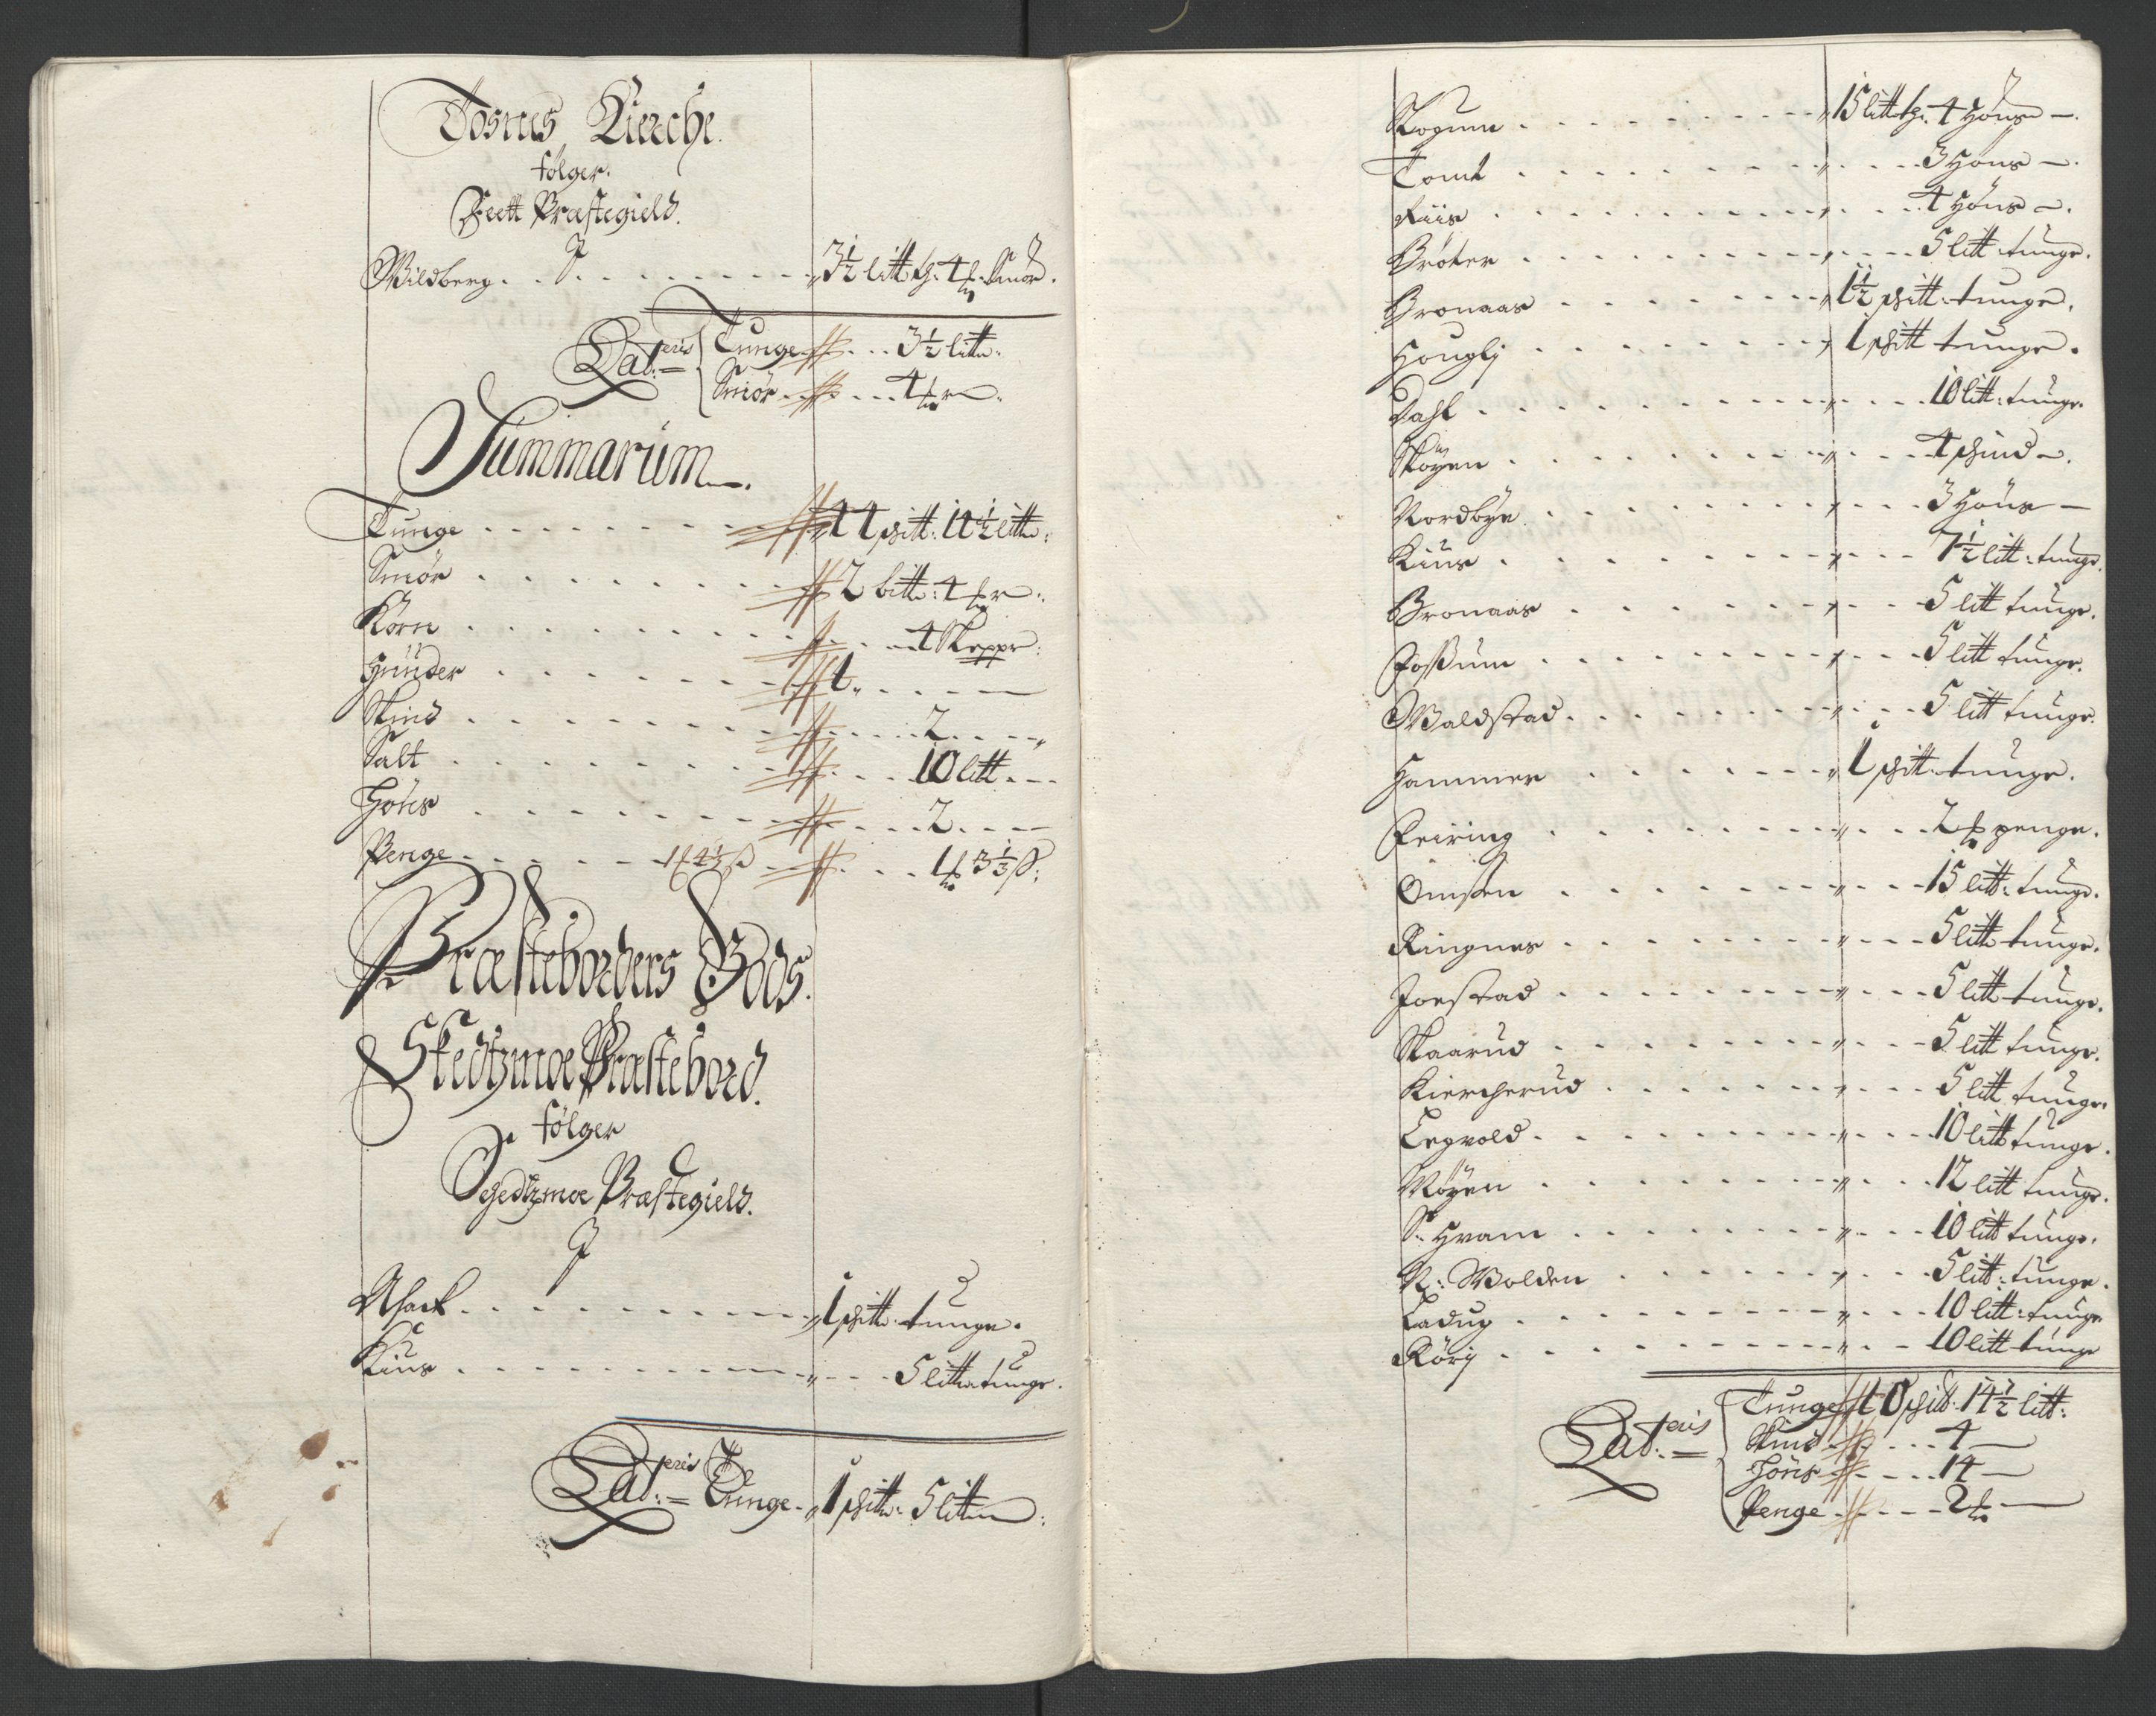 Tosnes Kierche.
følger.
Feett Præstegield.
J
Wildberg . . . 3½ litt tg: 4 # Smör.
Lat:eris = Tunge . . . 3½ litt:
Smör . . . 4 #r
Summarum.
Tunge . . . 44 skitt: 11½ litt:
Smör . . . 2 bitt: 4 #r:
Korn . . . 4 Skeppr:
Hunder . . . 1.
Skind . . . 2.
Salt . . . 10 litt.
Höns . . . 2.
Penge . . . 1 # 3⅓ ß:
Præsteborders Gods.
Skedtzmoe Præstebord.
følger
Schedtzmoe Præstegield.
J
Asach . . . 1 skitt: tunge.
Kius . . . 5 litt: tunge.
Lat:eris = Tunge . 1 skitt: 5 litt:
Skogum . . . 15 litt tg: 4 Höns.
Tomt . . . 3 Höns.
Riis . . . 4 Höns.
Bröter . . . 5 litt tunge.
Bronaas . . . 1½ skitt: tunge.
Hougly . . . 1 skitt tunge.
Dahl . . . 10 litt: tunge.
Skøyen . . . 4 skind.
Nordbye . . . 3 Höns
Kius . . . 7½ litt: tunge.
Bronaas . . . 5 litt tunge.
Joßum . . . 5 litt tunge.
Waldstad . . . 5 litt tunge.
Hammer . . . 1 skitt: tunge.
Feiring . . . 2 # penge.
Omsen . . . 15 litt: tunge.
Ringnes . . . 5 litt tunge.
Joestad . . . 5 litt tunge.
Skaarud . . . 5 litt tunge.
Kiercherud . . . 5 litt tunge.
Legvold . . . 10 litt tunge.
Møyen . . . 12 litt tunge.
S: Hvam . . . 10 litt tunge.
N: Wolden . . . 5 litt: tunge.
Ladug . . . 10 litt: tunge
Röry . . . 10 litt tunge
Lat:eris = Tunge 10 skitt: 14½ litt:
Skind . . . 4
Höns . . . 14
Penge . . . 2 #